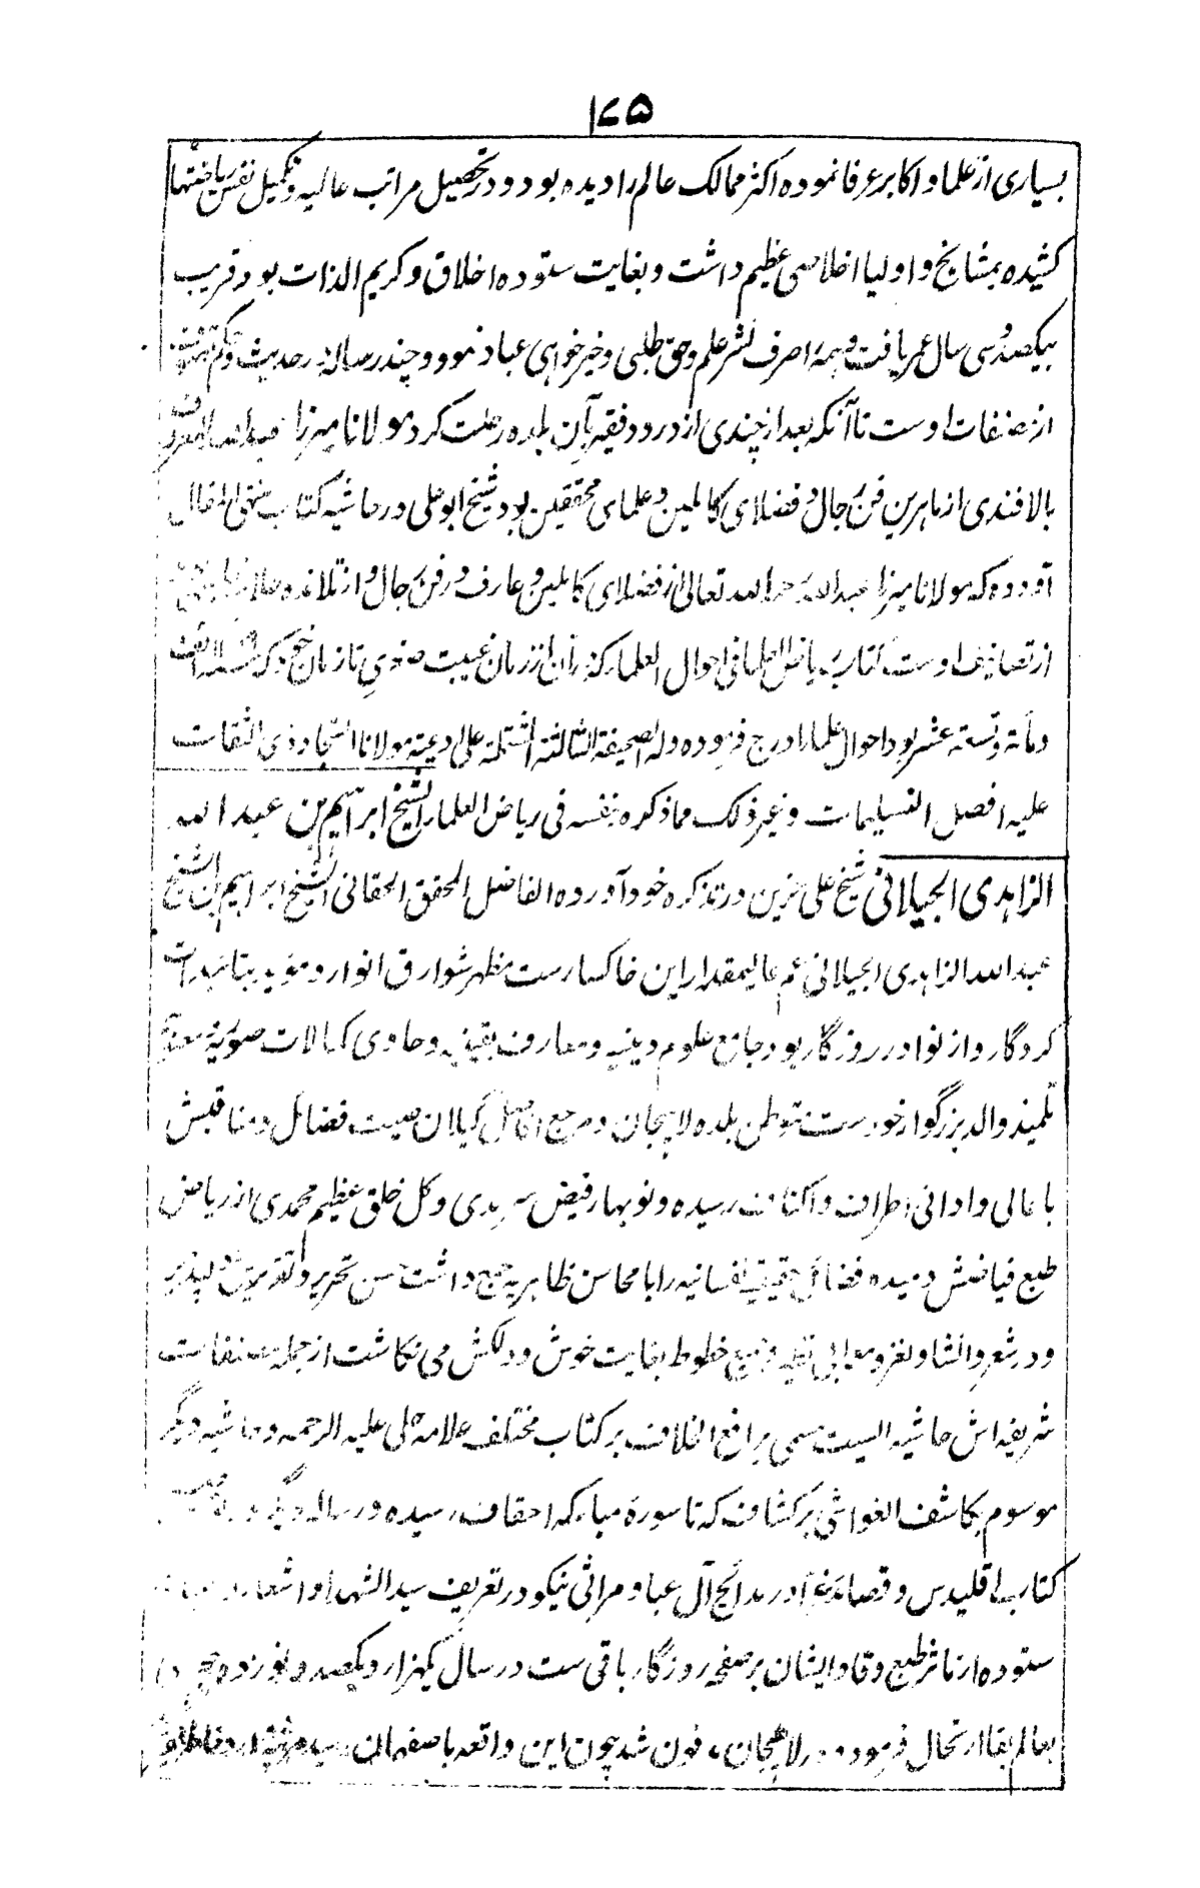 ۱۷۵
بسیاری از علما و اکابر عرفا نموده اکثر ممالک عالم را دیده بود و در تحصیل مراتب عالیه و تکمیل نفس ریاضتها
کشیده بمشایخ و اولیا اخلاصی عظیم داشت و بغایت ستوده اخلاق و کریم الذات بود قریب
بیکصد و سی سال عمر یافت و همه را صرف نشر علم و حق طلبی و خیر خواهی عباد نموده و چند رساله در حدیث و حکم
از مصنفات اوست تا آنکه بعد از چندی از ورود فقیر بآن بلده رحلت کرد مولانا میرزا عبد الله المعروف
بالافندی از ماهرین فن رجال و فضلای کاملین و علمای محققین بود شیخ ابو علی در حاشیه کتاب منتهی المقال
آورده که مولانا میرزا عبد الله رحمه الله تعالی از فضلای کاملین و عارف در فن رجال و از تلامذه علامه
از تصانیف اوست کتاب ریاض العلما فی احوال العلما که در آن از زمان غیبت صغری تا زمان خود که
و مأته و تسعة عشر بود احوال علما را درج فرموده و له الصحیفة الثالثة المشتملة علی ادعیة مولانا السجاد ذی الثفنات
علیه افضل التسلیمات و غیر ذلک مما ذکره بنفسه فی ریاض العلما الشیخ ابراهیم بن عبد الله
الزاهدی الجیلانی شیخ علی حزین در تذکره خود آورده الفاضل المحقق الحقانی الشیخ ابراهیم بن الشیخ
عبد الله الزاهدی الجیلانی عم عالیمقدار این خاکسارست مظهر شوارق انوار و مؤید بتائیدات
کردگار و از نوادر روزگار بود جامع علوم دینیه و معارف یقینیه و حاوی کمالات صوریه و معنویه
تلمیذ والد بزرگوار خودست متوطن بلده لاهیجان و مرجع افاضل گیلان صیت فضائل و مناقبش
باعالی و ادانی اطراف و اکناف رسیده و نوبهار فیض سرمدی و گل خلق عظیم محمدی از ریاض
طبع فیاضش دمیده فضائل حقیقیه نفسانیه را با محاسن ظاهریه جمع داشت حسن تحریر و تقریرش دلپذیر
و در شعر و انشا و لغز و معما بی نظیر و جمیع خطوط بغایت خوش و دلکش می نگاشت از جمله مصنفات
شریفه اش حاشیه ایست مسمی برافع الخلاف بر کتاب مختلف علامه حلی علیه الرحمه و حاشیه دیگر
موسوم بکاشف الغواشی بر کشاف که تا سوره مبارکه احقاف رسیده و رساله دیگر در
کتاب اقلیدس و قصائد غرا در مدائح آل عبا و مراثی نیکو در تعریف سید الشهدا و اشعار
ستوده از مآثر طبع وقاد ایشان بر صفحه روزگار باقی ست در سال یکهزار و یکصد و نوزده هجری
بعالم بقا ارتحال فرمود و در لاهیجان مدفون شد چون این واقعه باصفهان رسید